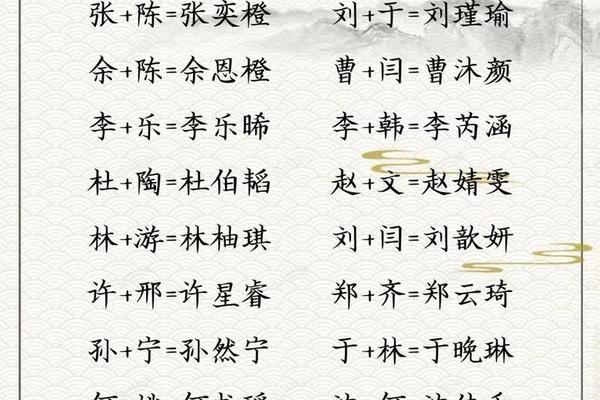 张+陈=张奕橙 刘+于=刘瑾瑜
余+陈=余恩橙 曹+闫=曹沐颜
李+乐=李乐晞 李+韩=李芮涵
杜+陶=杜伯韬 赵+文=赵婧雯
林+游=林柚琪 刘+闫=刘歆妍
许+邢=许星睿 郑+齐=郑云琦
孙+宁=孙然宁 于+林=于晚琳